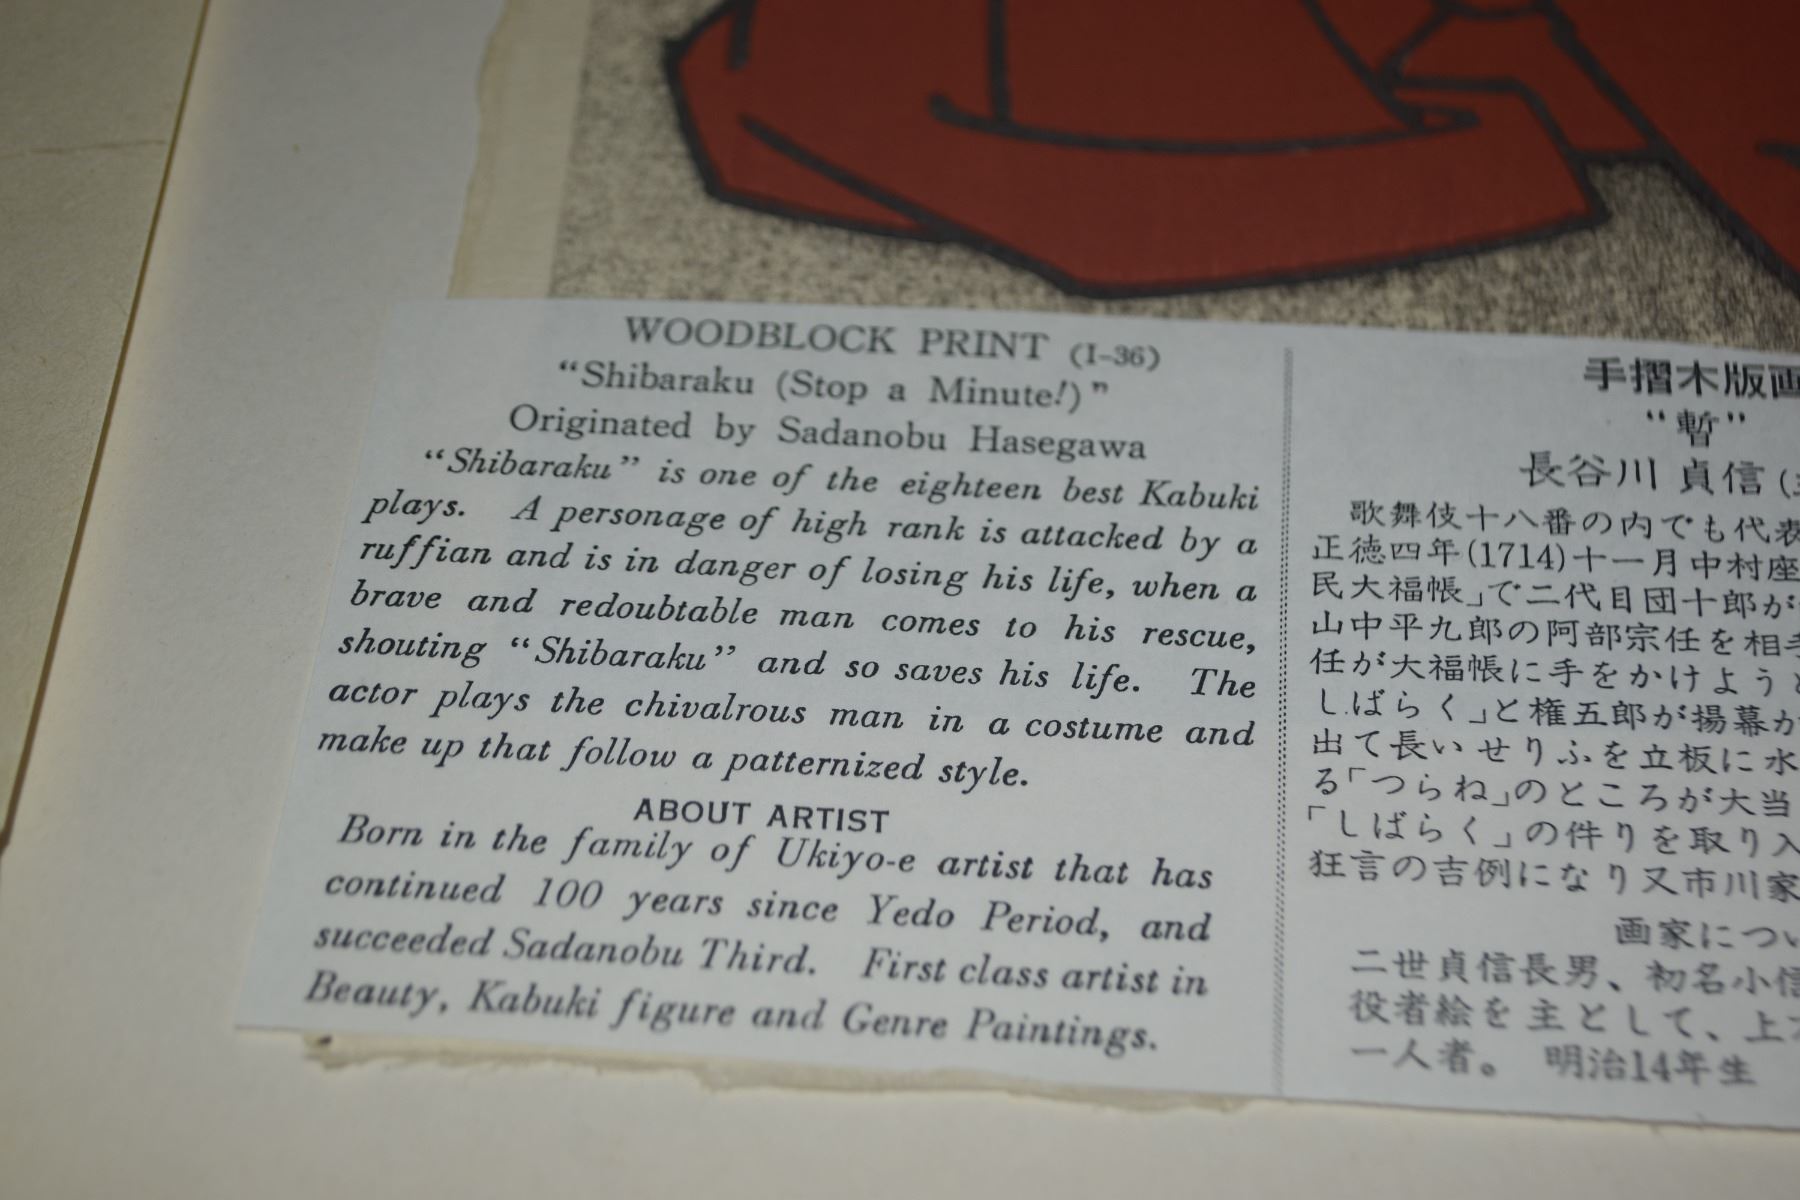 WOODBLOCK PRINT (I-36)
“Shibaraku (Stop a Minute!)”
Originated by Sadanobu Hasegawa
“Shibaraku” is one of the eighteen best Kabuki
plays. A personage of high rank is attacked by a
ruffian and is in danger of losing his life, when a
brave and redoubtable man comes to his rescue,
shouting “Shibaraku” and so saves his life. The
actor plays the chivalrous man in a costume and
make up that follow a patternized style.
ABOUT ARTIST
Born in the family of Ukiyo-e artist that has
continued 100 years since Yedo Period, and
succeeded Sadanobu Third. First class artist in
Beauty, Kabuki figure and Genre Paintings.
手摺木版画
“暫”
長谷川 貞信
歌舞伎十八番の内でも代表
正徳四年(1714)十一月中村座
民大福帳」で二代目団十郎が
山中平九郎の阿部宗任を相手
任が大福帳に手をかけようと
しばらく」と権五郎が揚幕か
出て長いせりふを立板に水
る「つらね」のところが大当
「しばらく」の件りを取り入
狂言の吉例になり又市川家
画家につい
二世貞信長男、初名小信
役者絵を主として、上
一人者。 明治14年生